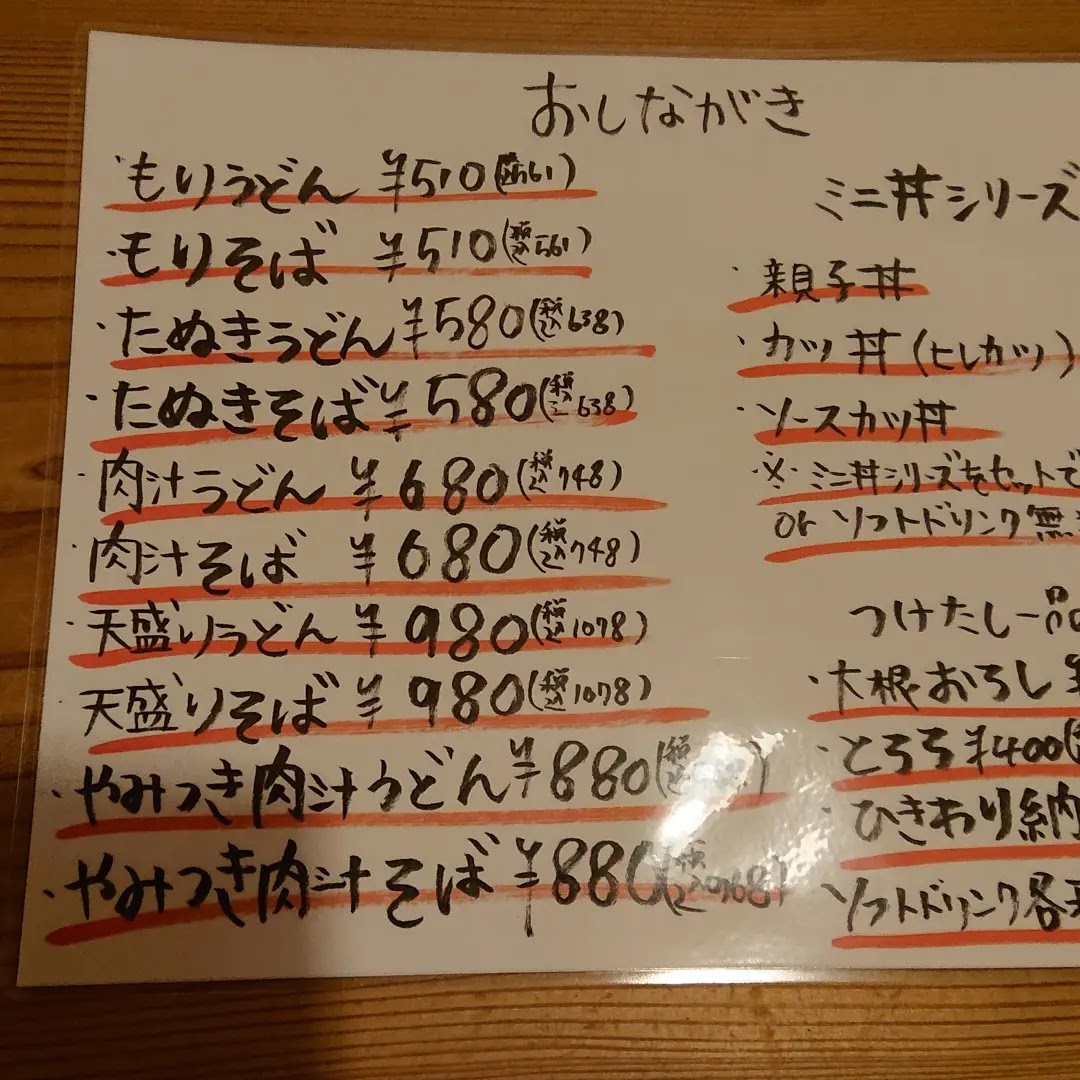 おしながき
・もりうどん ¥510(税込561)
・もりそば ¥510(税込561)
・たぬきうどん ¥580(税込638)
・たぬきそば ¥580(税込638)
・肉汁うどん ¥680(税込748)
・肉汁そば ¥680(税込748)
・天盛りうどん ¥980(税込1078)
天盛りそば ¥980(税込1078)
・やみつき肉汁うどん ¥880(税込
・やみつき肉汁そば ¥880(税込
ミニ丼シリーズ
・親子丼
・カツ丼(ヒレカツ)
・ソースカツ丼
※ミニ丼シリーズをセットで
or ソフトドリンク無
つけたし一品
・大根おろし ¥
・とろろ ¥400(
・ひきわり納
ソフトドリンク各